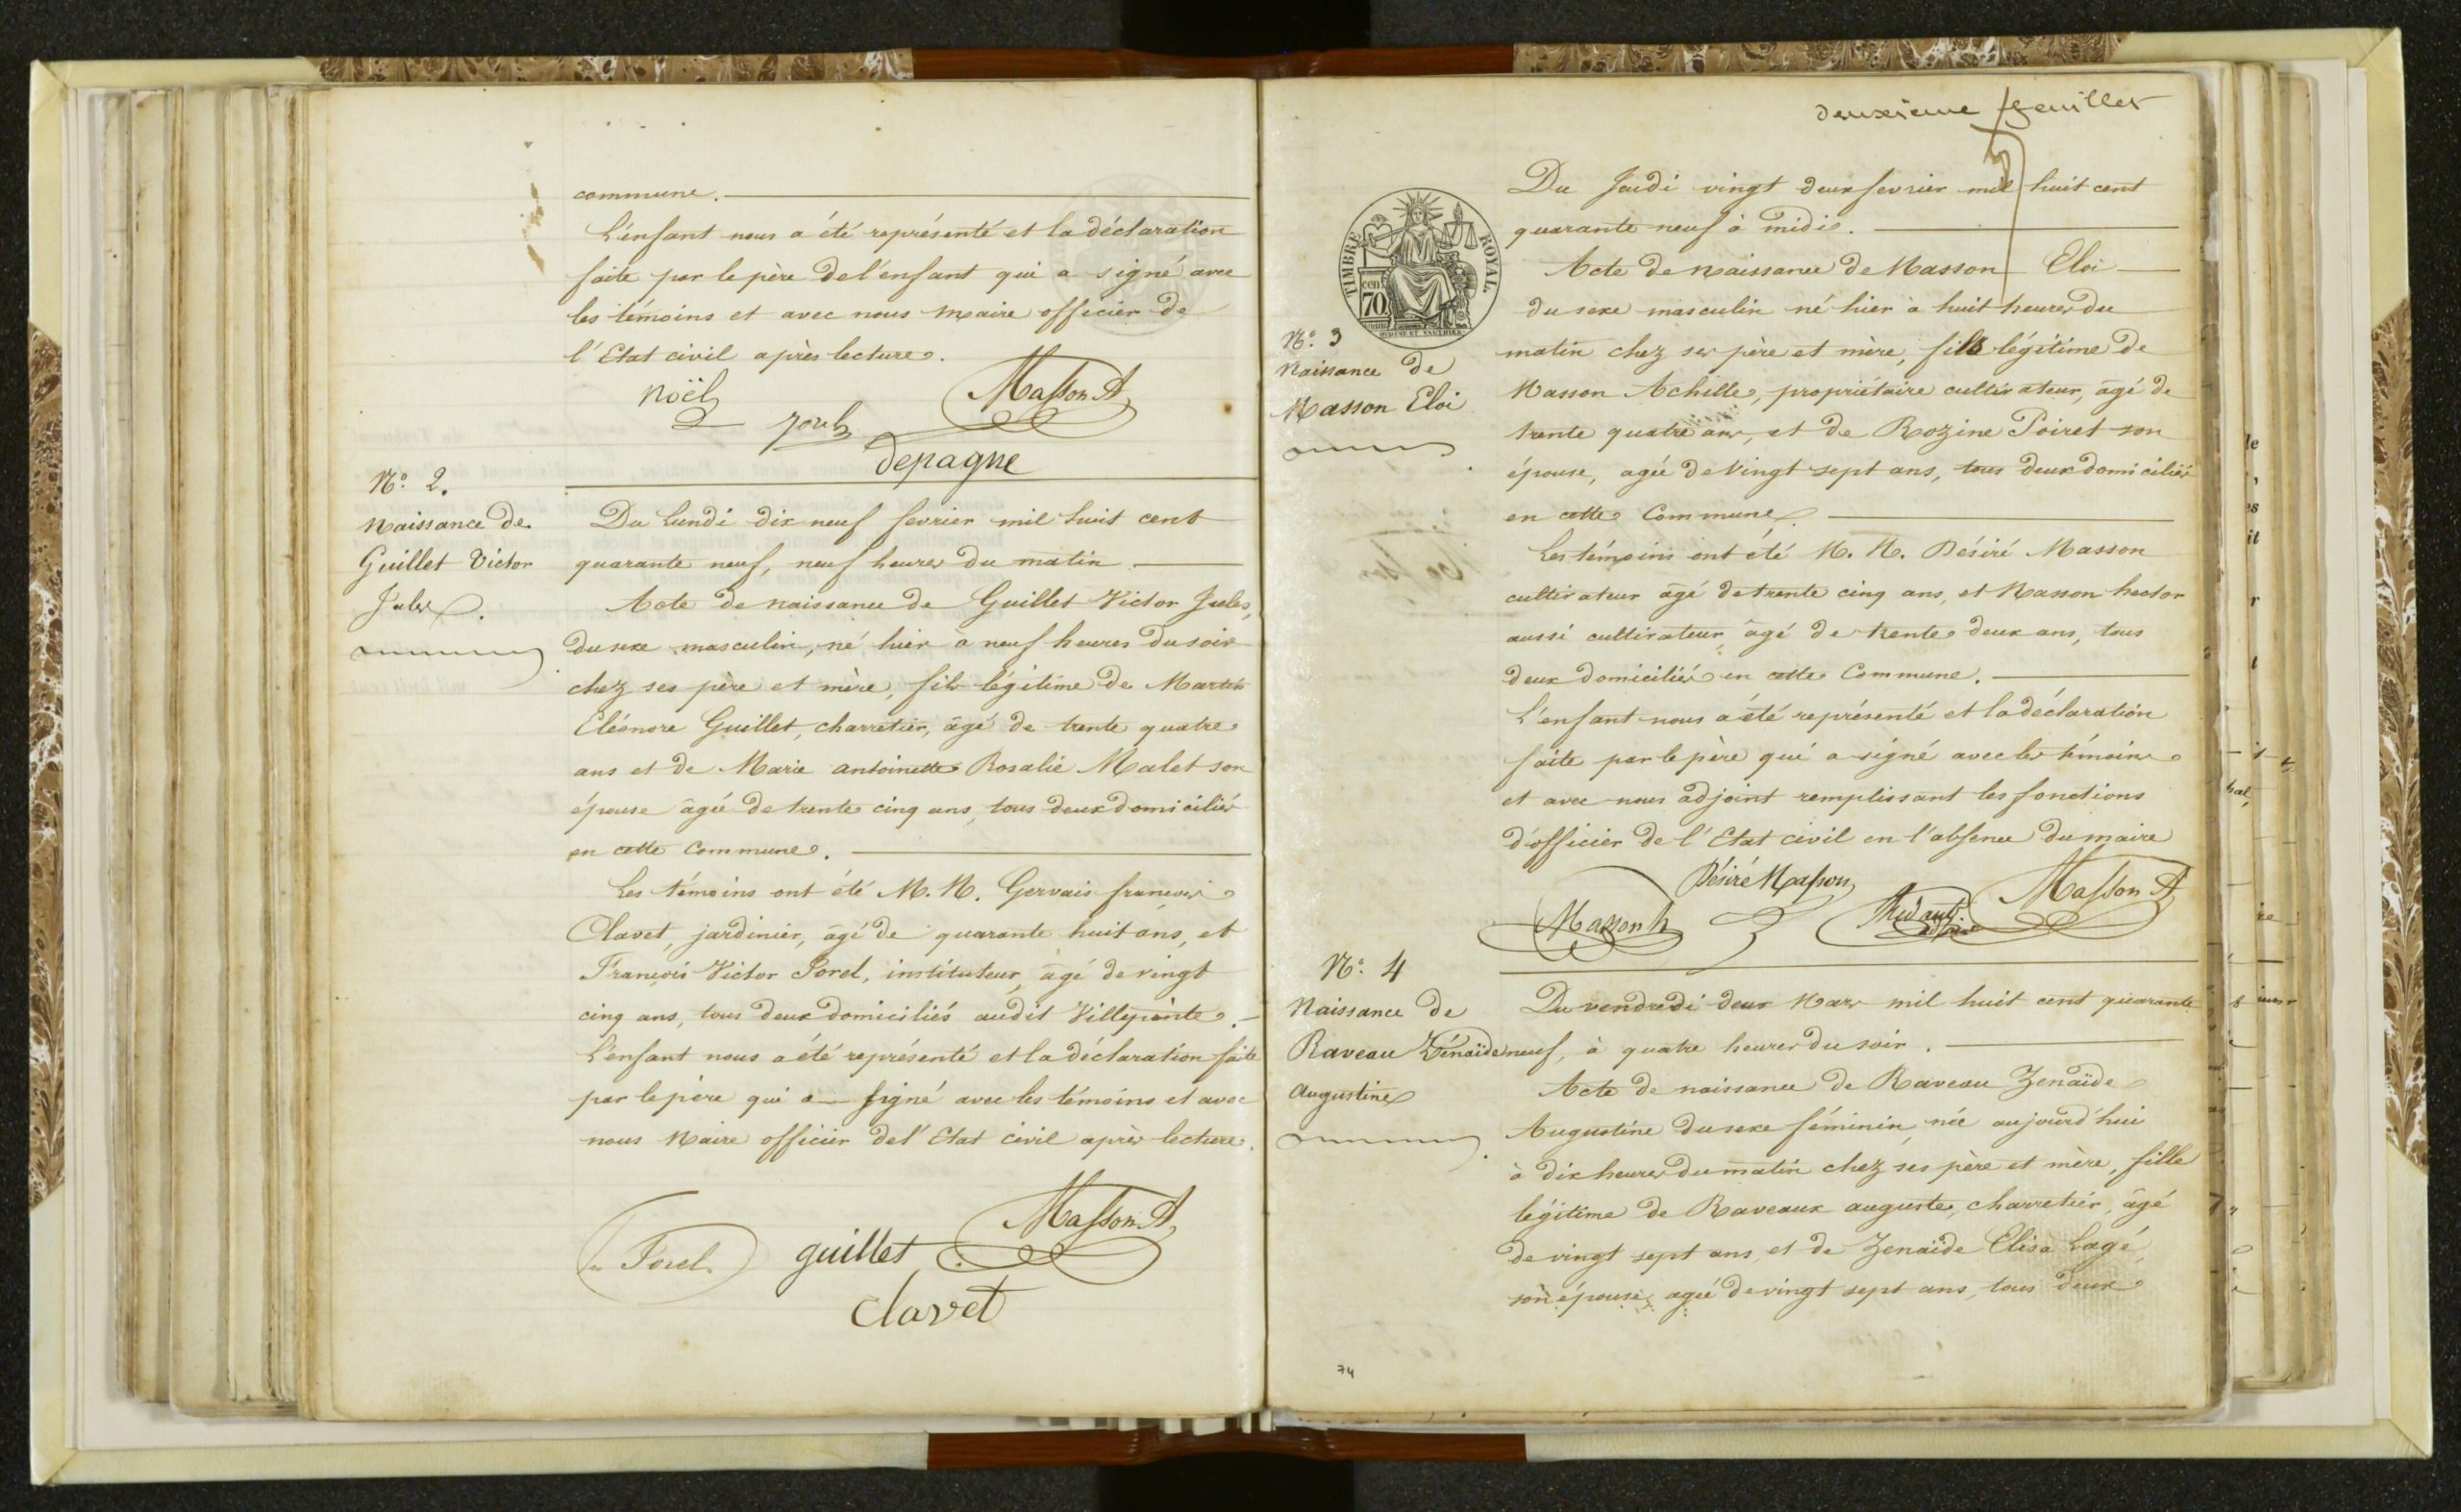 commune.
L'enfant nous a été représenté et la déclaration
faite par le père de l'enfant qui a signé avec
les témoins et avec nous maire officier de
l'Etat civil après lecture.
noël
Masson A
depagne
N.o 2.
Naissance de
Guillet Victor
Jules.
Du Lundi dix neuf fevrier mil huit cent
quarante neuf, neuf heures du matin
Acte de naissance de Guillet Victor Jules,
du sexe masculin, né hier à neuf heures du soir
chez ses père et mère, fils légitime de Martin
Eléonore Guillet, charretier, âgé de trente quatre
ans et de Marie antoinette Rosalie Malet son
épouse âgée de trente cinq ans, tous deux domiciliés
en cette Commune.
Les témoins ont été M. M. Gervais françois
Clavet, jardinier, âgé de quarante huit ans, et
François Victor Sorel, instituteur, âgé de vingt
cinq ans, tous deux domiciliés audit Villepinte.
L'enfant nous a été représenté et la déclaration faite
par le père qui a signé avec les témoins et avec
nous Maire officier de l'Etat civil après lecture.
Masson A
guillet
Clavet
deuxième feuillet
TIMBRE ROYAL
70 cent
N.o 3
Naissance de
Masson Eloi
Du Jeudi vingt deux fevrier mil huit cent
quarante neuf à midi.
Acte de naissance de Masson Eloi
du sexe masculin né hier à huit heures du
matin chez ses père et mère, fils légitime de
Masson Achille, propriétaire cultivateur, âgé de
trente quatre ans, et de Rozine Poiret son
épouse, agée de Vingt sept ans, tous deux domiciliés
en cette Commune.
Les témoins ont été M. M. Désiré Masson
cultivateur âgé de trente cinq ans, et Masson hector
aussi cultivateur, âgé de trente deux ans, tous
deux domiciliés en cette Commune.
L'enfant nous a été représenté et la déclaration
faite par le père qui a signé avec les témoins
et avec nous adjoint remplissant les fonctions
d'officier de l'Etat civil en l'absence du maire
Désiré Masson
Masson h
Masson A
N.o 4
Naissance de
Raveau Zénaïde
Augustine
Du vendredi deux Mars mil huit cent quarante
neuf, à quatre heures du soir.
Acte de naissance de Raveau Zenaïde
Augustine du sexe féminin, née aujourd'hui
à dix heures du matin chez ses père et mère, fille
légitime de Raveaux auguste, charretier, âgé
de vingt sept ans, et de Zenaïde Elisa Lagé,
son épouse, agée de vingt sept ans, tous deux
74